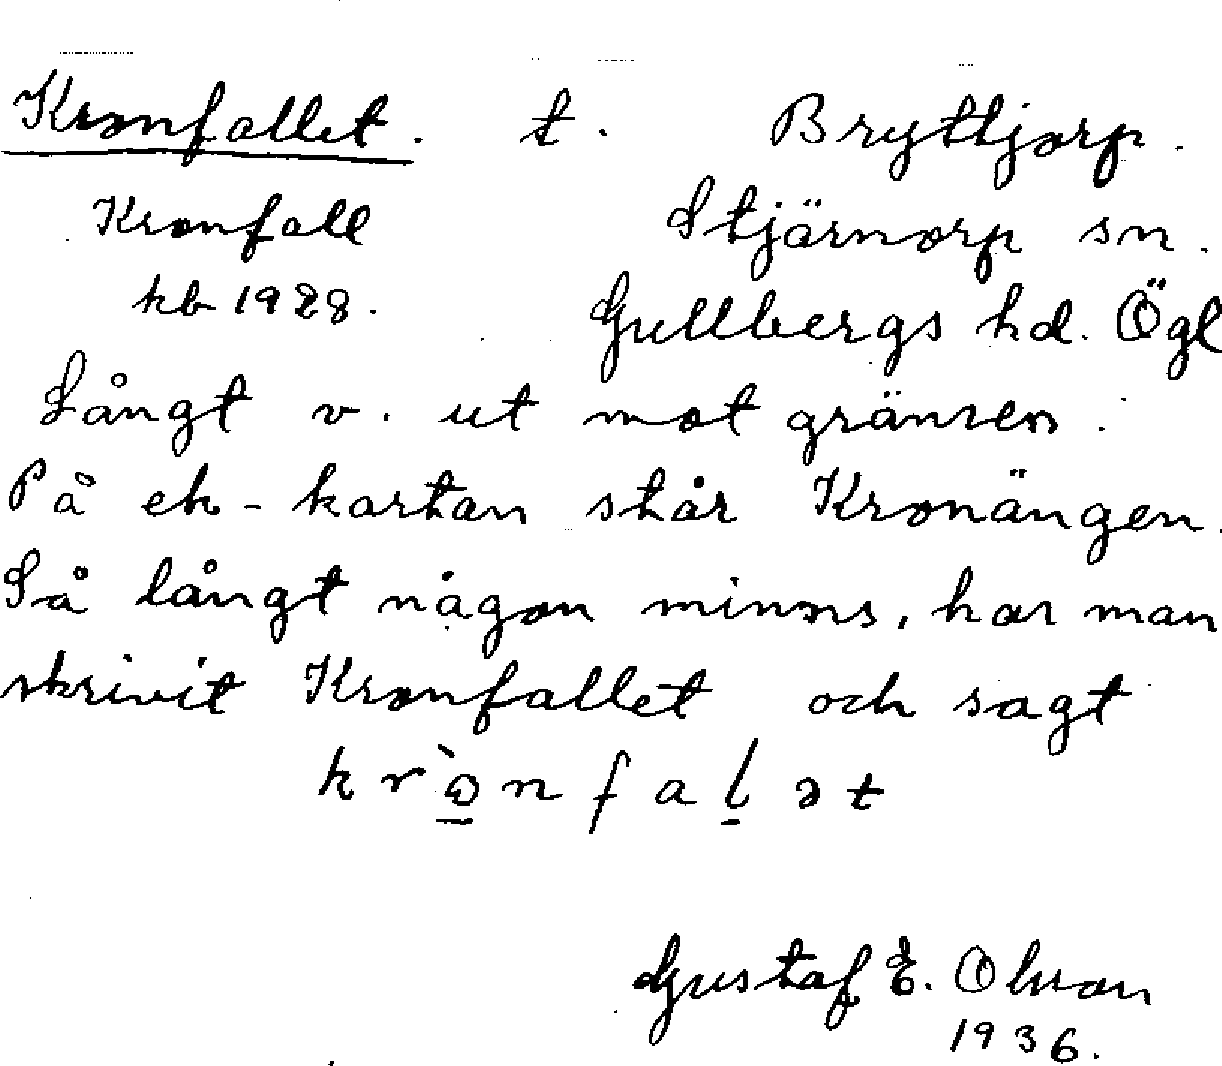 Kronfallet. t. Bryttjorp.
Kronfall Stjärnorp sn.
kb 1928. Gullbergs hd. Ögl
Långt v. ut mot gränsen.
På ek-kartan står Kronängen.
Så långt någon minns, har man
skrivit Kronfallet och sagt
Gustaf E. Olsson
1936.